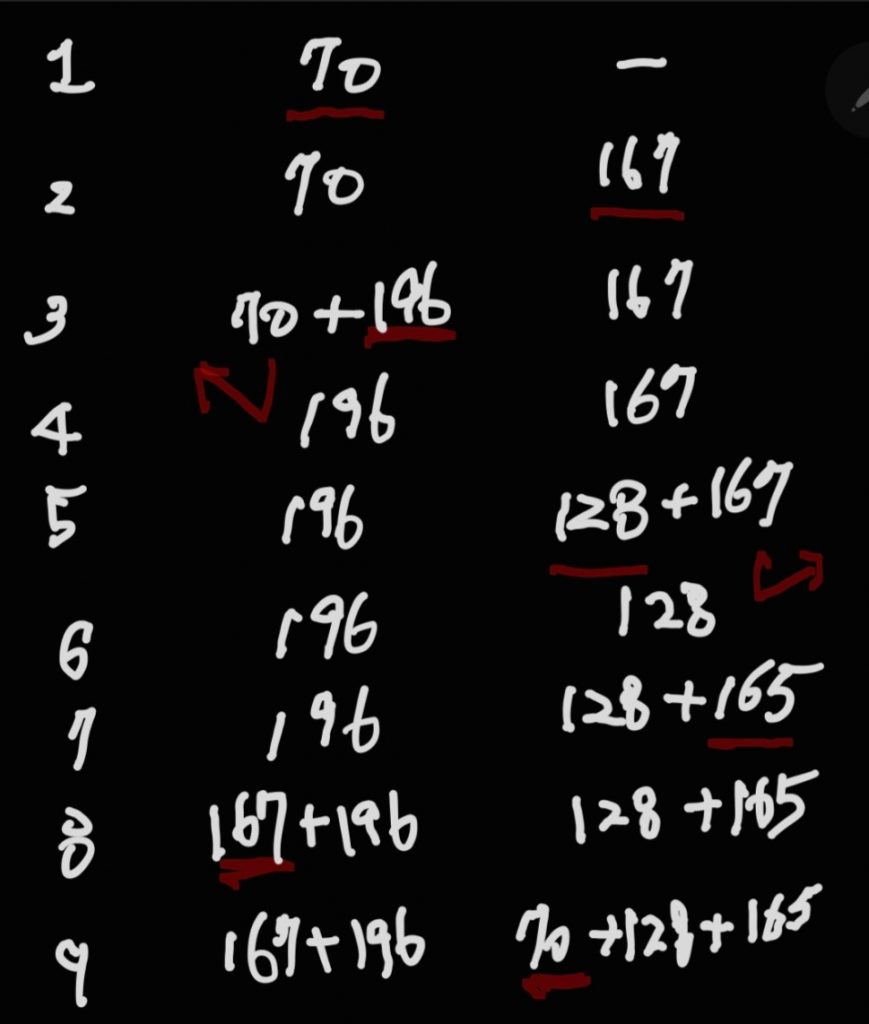 1 70 —
2 70 167
3 70 + 196 167
4 196 167
5 196 128 + 167
6 196 128
7 196 128 + 165
8 167 + 196 128 + 165
9 167 + 196 70 + 128 + 165